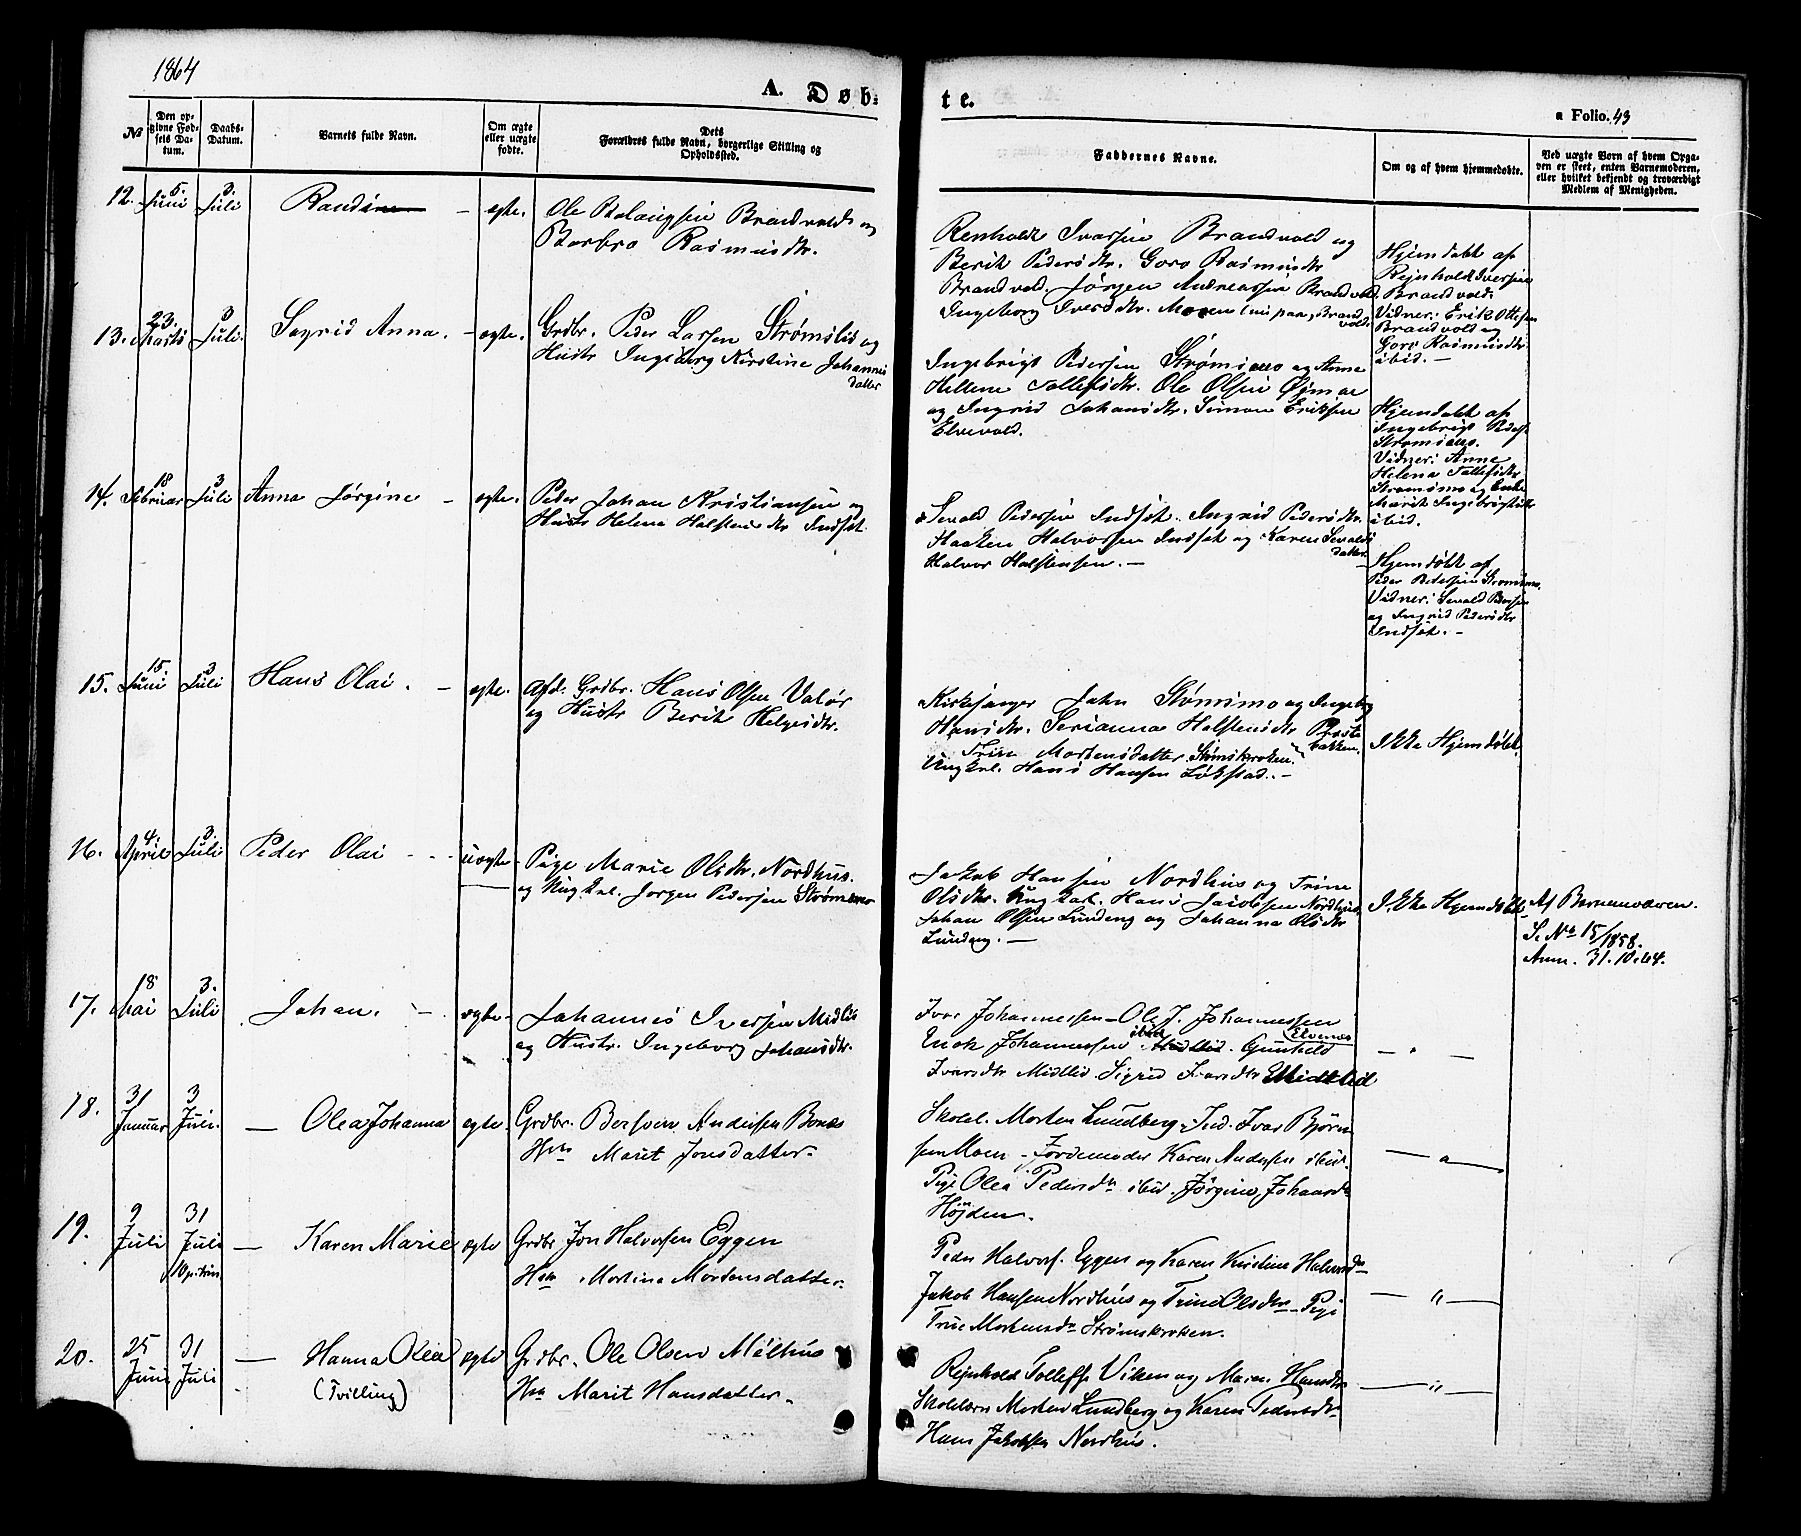 1864
A. Døb-
te.
a Folio. 43
№
Den op-
givne Fød-
sels Da-
tum.
Daabs-
Datum.
Barnets fulde Navn.
Om ægte
eller uægte
fødte.
Dets
Forældres fulde Navn, borgerlige Stilling og
Opholdssted.
Faddernes Navne.
Om og af hvem hjemmedøbte.
Ved uægte Børn af hvem Opga-
ven er skeet, enten Barnemoderen,
eller hvilket bekjendt og troværdigt
Medlem af Menigheden.
12. 5. Juni 3. Juli Randine - egte.
Ole Brandvold og
Barbro Rasmusdtr.
Renholdt Ivarsen Brandvold og
Berit Pedersdtr. Goro Rasmusdtr
Brandvold. Jørgen Andreassen Brandvold.
Ingeborg Iversdtr. Moren Brand
vold.
Hjemdøbt af
Rejnholdt Iversen
Brandvold.
Vidner: Erik Ottesen
Brandvold og
Goro Rasmusdtr
ibid. -
13. 23. Marts 3 Juli. Sigrid Anna. - egte.
Grdbr. Peder Larsen Strømslid og
Hustr Ingeborg Kirstine Johannes
datter
Ingebrigt Pedersen Strømsmo og Anne
Hellene Tollefsdtr. Ole Olsen Øjmoe
og Ingrid Johansdtr. Simon Eriksen
Elvevold.
Hjemdøbt af
Ingebrigt Peders.
Strømsmo.
Vidner: Anne
Helena Tollefsdtr
Strømsmo og Enke
Marit Ingebrigtsdtr
ibid.
14. 18 Februar 3 Juli Anna Jørgine - egte.
Peder Johan Kristiansen og
Hustr Helena Halstensdtr Indsæt.
Sevald Pedersen Indsæt. Ingrid Pedersdtr.
Haaken Halvorsen Indsæt og Karen Sevalds
datter.
Halvor Halstensen. -
Hjemdøbt af
Peder Pedersen Strømsmo.
Vidner: Sevald Pedersen
og Ingrid Pedersdtr
Indsæt. -
15. 15. Juni 3 Juli Hans Olai. - egte.
Afd. Grdbr. Hans Olsen Valør
og Hustr Berit Helgesdtr.
Kirksanger John Strømsmo og Ingebor
Hansdtr. Serianna Halstensdtr Præste
bakken.
Trine Mortensdatter Strømskroken.
Ungkal. Hans Hansen Løkstad. -
Ikke Hjemdøbt.
16. 4. April 3. Juli Peder Olai - - - uegte
Pige Marie Olsdtr. Nordhus.
og Ungkal. Jørgen Pedersen Strømsmo
Jakob Hansen Nordhus og Trine
Olsdtr. Ungkarl. Hans Jacobsen Nordhus.
Johan Olsen Lundeng og Johanna Olsdtr
Lundeng. -
Ikke Hjemdøbt
Af Barnemoderen.
Se No 15/1858.
Anm. 31.10.64.
17. 18 Mai 3. Juli Johan. - egte.
Johannes Iversen Midlid
og Hustr. Ingeborg Johansdtr.
Ivar Johannessen - Ole J. Johannessen
Elvenæs
Enok Johannessen ibid Midlid. Gunhild
Ivarsdtr Midlid. Sigrid Ivarsdtr Midtlid
- " -
18. 31 Januar 3 Juli. - Olea Johanna egte
Grdbr. Bersven Andersen Bonæs
Hstr Marit Jonsdatter.
Skolel. Morten Lundberg. Ind. Ivar Bjørn
sen Moen - Jordemoder Karen Andersen ibid.
Pige Olea Pedersdtr ibid. Jørgine Johansdtr
Højden.
- " -
19. 9 Juli 31 Juli - Karen Marie egte
10 p. Trin
Grdbr Jon Halvorsen Eggen
Hstr Martina Mortensdatter.
Peder Halvors. Eggen og Karen Kirstine Halvorsdtr
Jakob Hansen Nordhus og Trine Olsdtr - Pige
Trine Mortensdtr Strømskroken.
- " -
20. 25 Juni 31 Juli - Hanna Olea egte
(Tvilling)
Grdbr. Ole Olsen Mølhus
Hstr Marit Hansdatter.
Rejnhold Tollefs. Viken og Maren Hansdtr
Skolelærer Morten Lundberg og Karen Pedersdtr
Hans Jakobsen Nordhus.
- " -